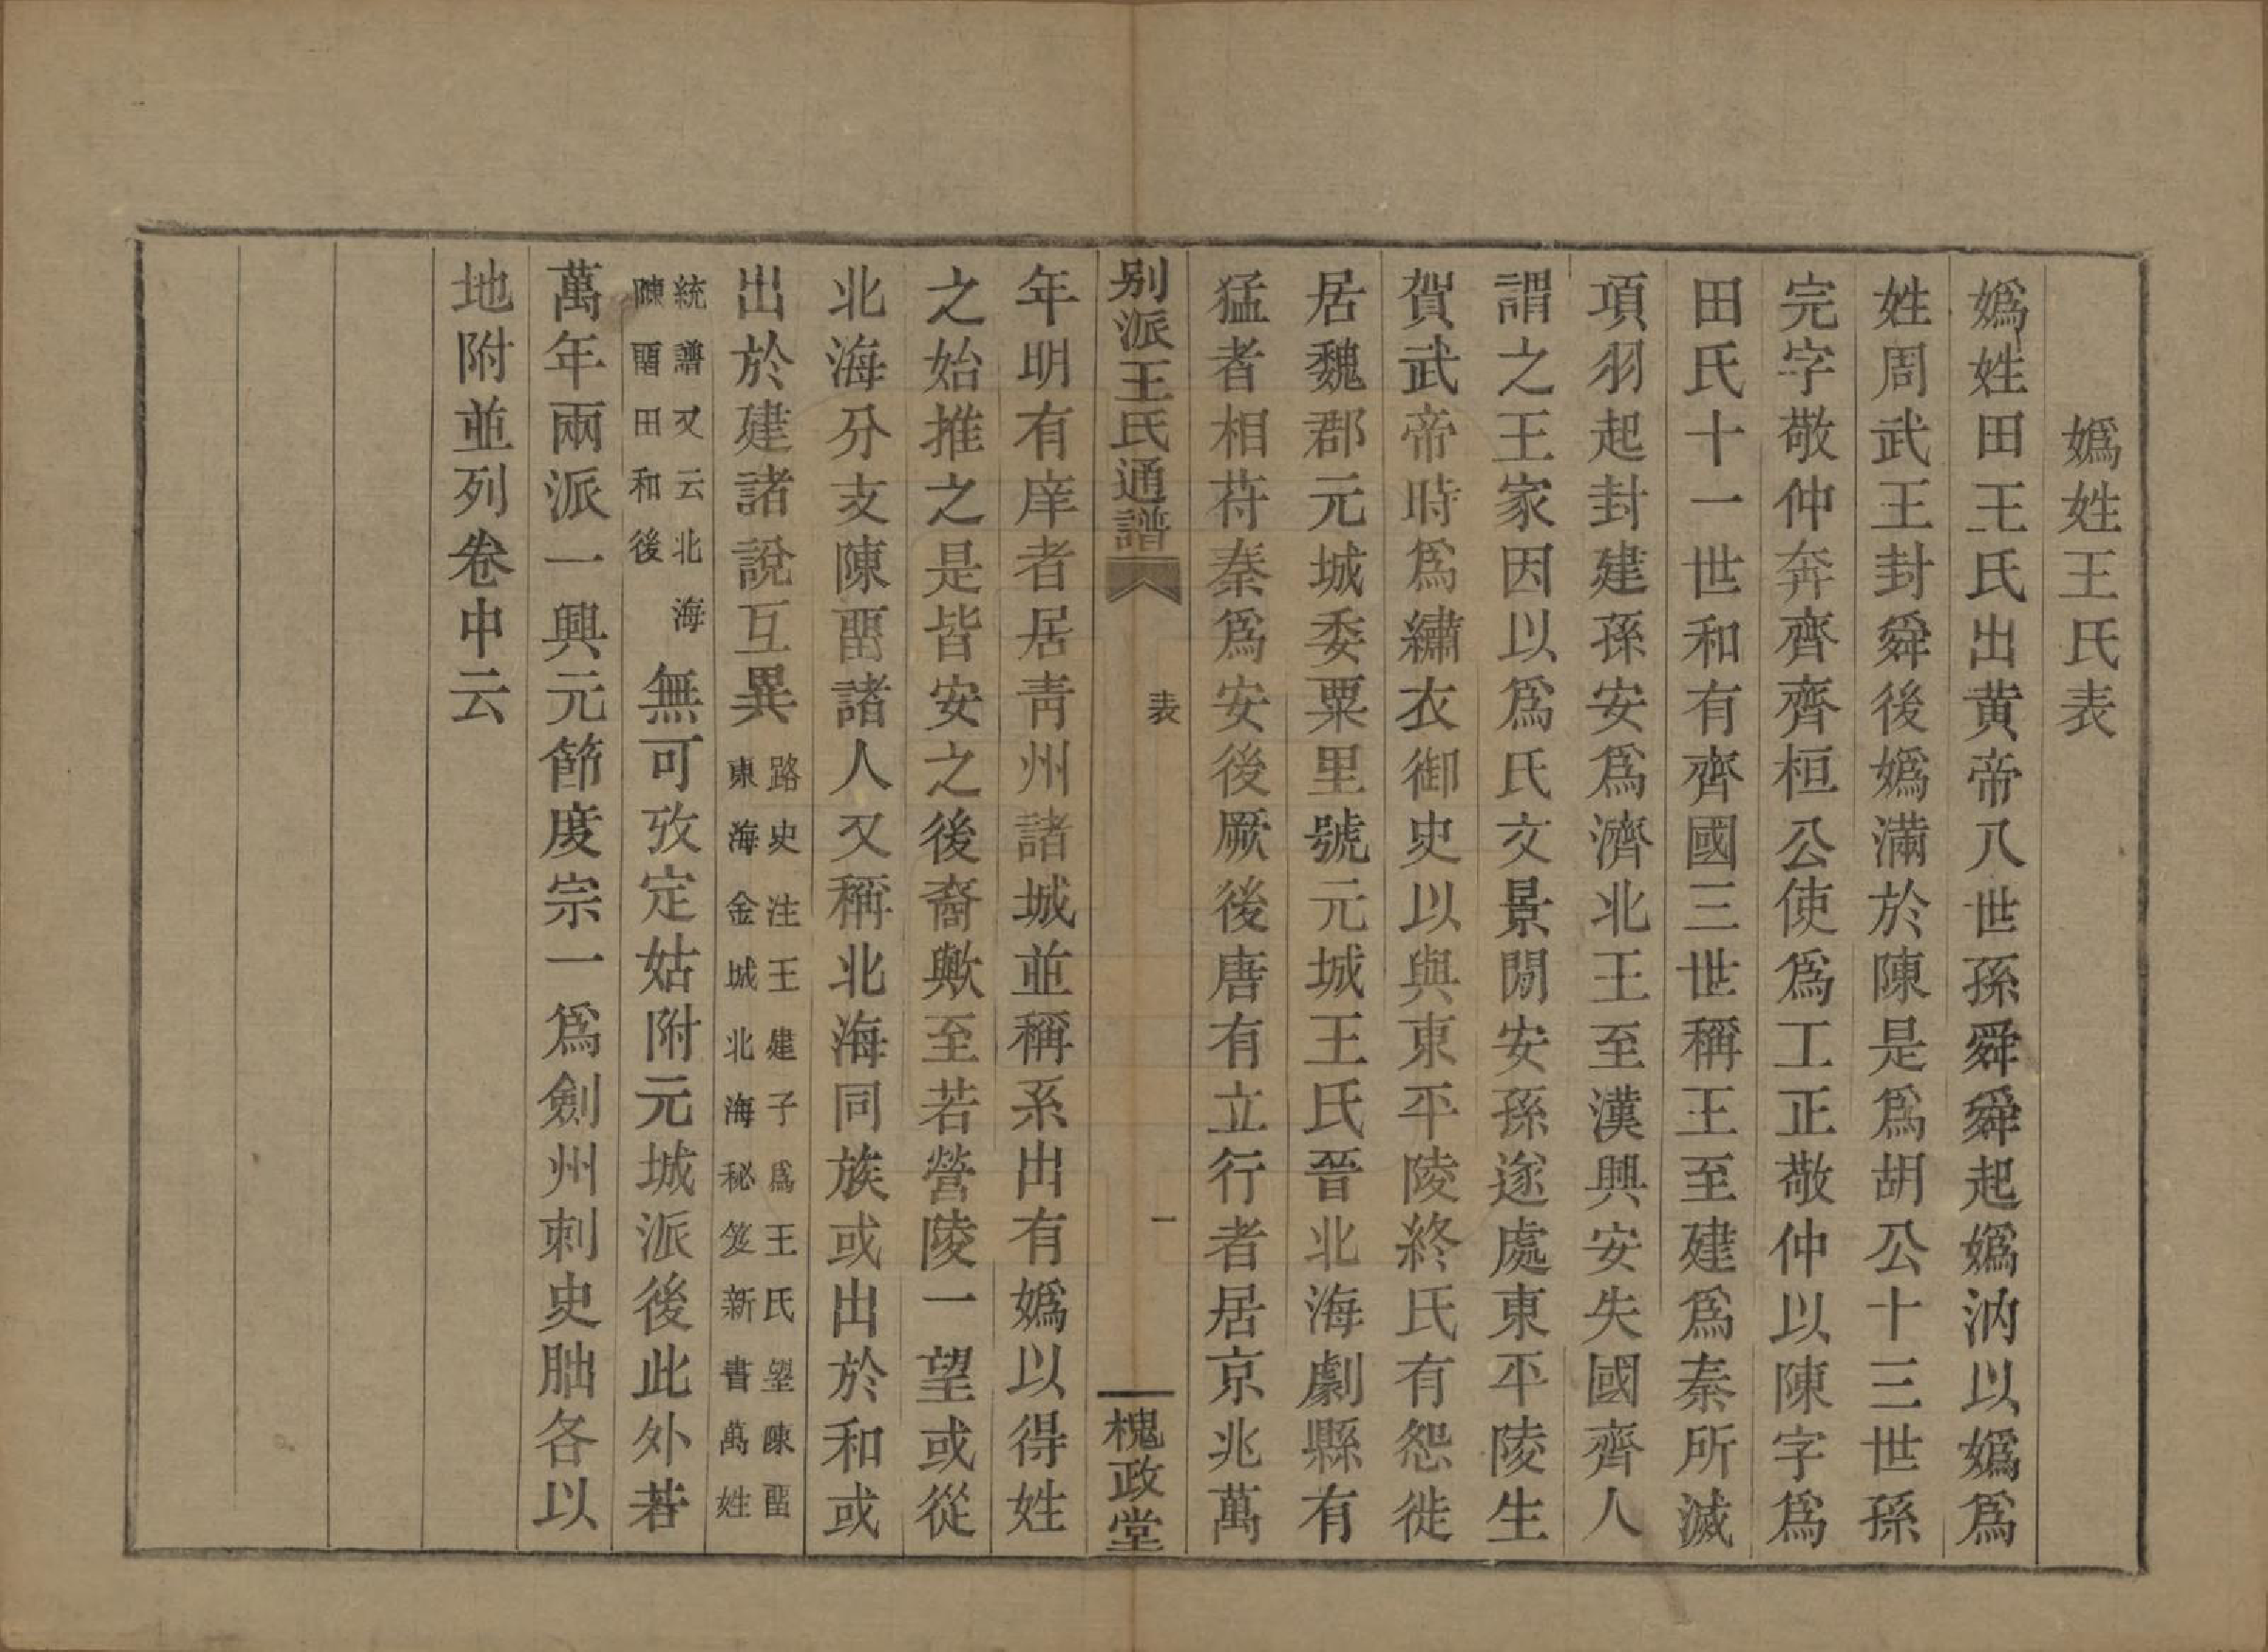 嬀姓王氏表
嬀姓田王氏出黃帝八世孫舜舜起嬀汭以嬀爲
姓周武王封舜後嬀滿於陳是爲胡公十三世孫
完字敬仲奔齊齊桓公使爲工正敬仲以陳字爲
田氏十一世和有齊國三世稱王至建爲秦所滅
項羽起封建孫安爲濟北王至漢興安失國齊人
謂之王家因以爲氏文景閒安孫遂處東平陵生
賀武帝時爲繡衣御史以與東平陵終氏有怨徙
居魏郡元城委粟里號元城王氏晉北海劇縣有
猛者相苻秦爲安後厥後唐有立行者居京兆萬
别派王氏通譜
表
一
槐政堂
年明有庠者居靑州諸城並稱系出有嬀以得姓
之始推之是皆安之後裔歟至若營陵一望或從
北海分支陳畱諸人又稱北海同族或出於和或
出於建諸說互異路史注王建子爲王氏望陳畱
東海金城北海秘笈新書萬姓
統譜又云北海
陳畱田和後無可攷定姑附元城派後此外若
萬年兩派一興元節度宗一爲劍州刺史朏各以
地附並列卷中云